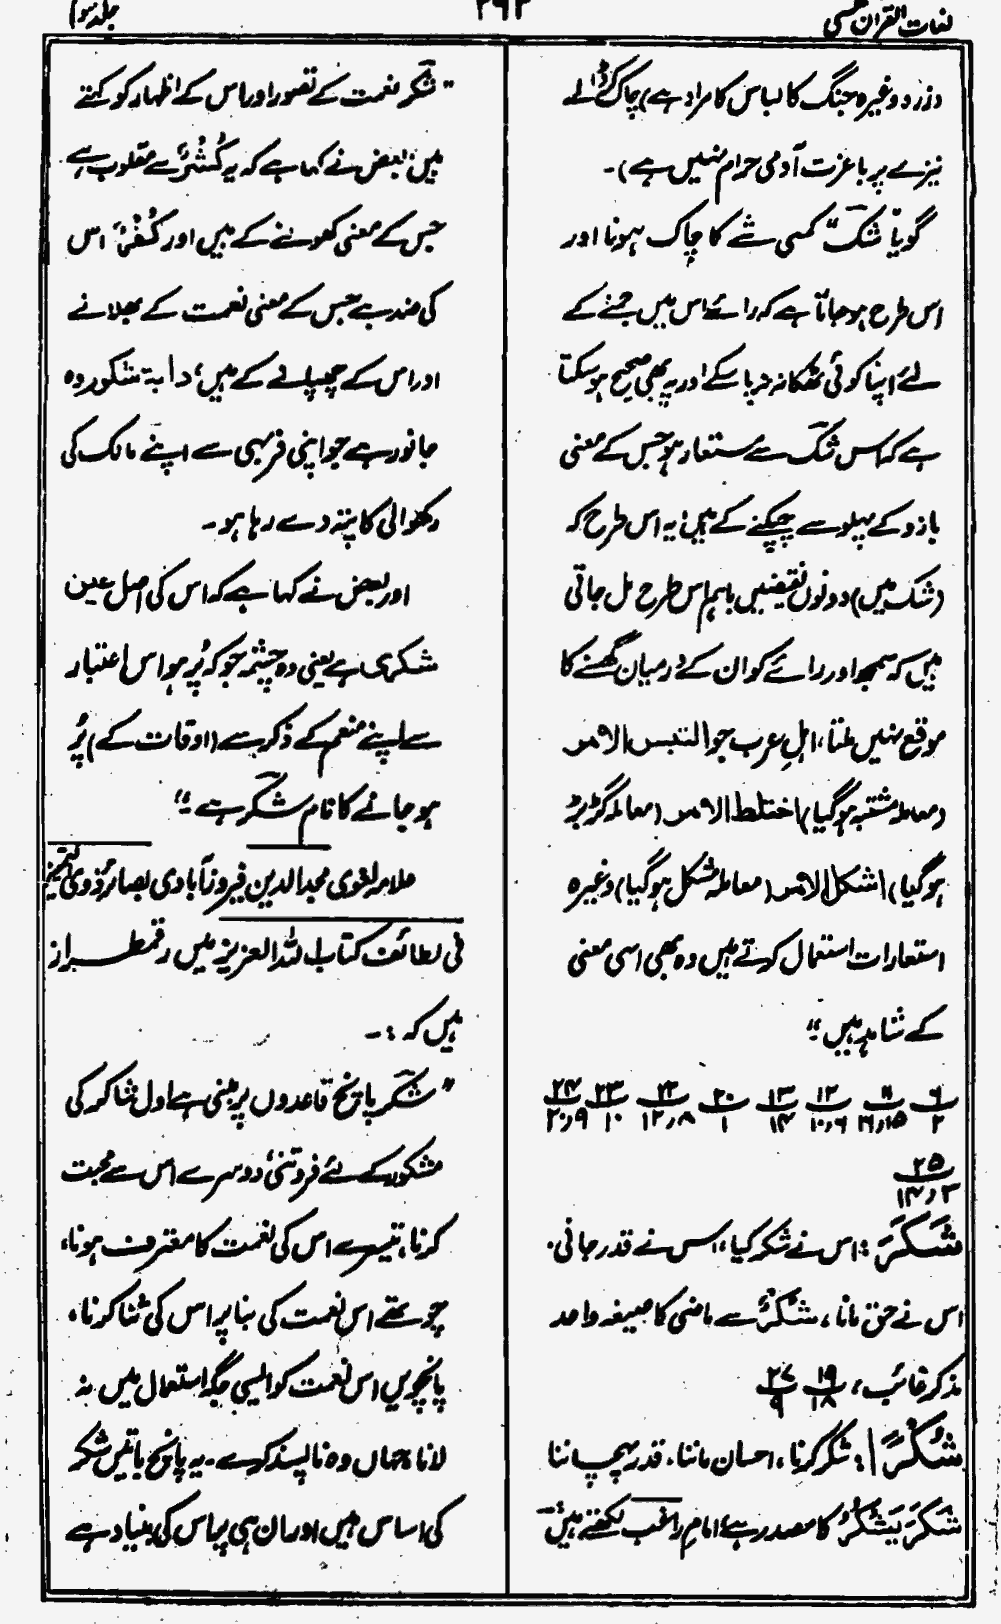 لغات القرآن
۲۹۳
جلد سوم
وزرہ وغیرہ جنگ کا لباس کا مراد ہے) چاک کر ڈالے
نیزے پر باعزت آدمی حرام نہیں ہے)۔
گویا شک کسی شے کا چاک ہونا اور
اس طرح ہو جاتا ہے کہ رائے اس میں جمنے کے
لئے اپنا کوئی ٹھکانہ نہ پا سکے اور یہ بھی صحیح ہو سکتا
ہے کہ اس شک سے مستعار ہو جس کے معنی
بازو کے پہلو سے چپکنے کے ہیں؛ یہ اس طرح کہ
(شک میں) دونوں نقیضیں باہم اس طرح مل جاتی
ہیں کہ سمجھ اور رائے کو ان کے درمیان گھسنے کا
موقع نہیں ملتا، اہلِ عرب جو التبس الامر
(معاملہ مشتبہ ہو گیا) اختلط الامر (معاملہ گڑبڑ
ہو گیا) اشکل الامر (معاملہ مشکل ہو گیا) وغیرہ
استعارات استعمال کرتے ہیں وہ بھی اسی معنی
کے شاہد ہیں"
۶/۲ ۱۱/۱۵ر۲۱ ۱۲/۶ر۱۰ ۱۳/۱۴ ۲۰/۱ ۲۲/۸ر۱۲ ۲۳/۱۰ ۲۴/۹ر۲۰
۲۵/۳ر۱۴
شَکَرَ: اس نے شکر کیا، اس نے قدر جانی،
اس نے حق مانا، شُکْرٌ سے ماضی کا صیغہ واحد
مذکر غائب، ۱۹/۱۸ ۲۷/۹
شُکْرًا: شکر کرنا، احسان ماننا، قدر پہچاننا
شَکَرَ یَشْکُرُ کا مصدر ہے، امام راغب لکھتے ہیں
"شکر نعمت کے تصور اور اس کے اظہار کو کہتے
ہیں، بعض نے کہا ہے کہ یہ کَشْرٌ سے مقلوب ہے
جس کے معنی کھولنے کے ہیں اور کُفْرٌ اس
کی ضد ہے جس کے معنی نعمت کے بھلانے
اور اس کے چھپانے کے ہیں، دابۃ شکور وہ
جانور ہے جو اپنی فربہی سے اپنے مالک کی
رکھوالی کا پتہ دے رہا ہو۔
اور بعض نے کہا ہے کہ اس کی اصل عین
شکریٰ ہے یعنی وہ چشمہ جو کہ پُر ہو اس اعتبار
سے اپنے منعم کے ذکر سے (اوقات کے) پُر
ہو جانے کا نام شکر ہے"
علامہ لغوی مجد الدین فیروز آبادی بصائر ذوی التمییز
فی لطائف کتاب اللہ العزیز میں رقمطراز
ہیں کہ :۔
"شکر پانچ قاعدوں پر مبنی ہے اول شاکر کی
مشکور کے لئے فروتنی، دوسرے اس سے محبت
کرنا، تیسرے اس کی نعمت کا معترف ہونا،
چوتھے اس نعمت کی بنا پر اس کی ثنا کرنا،
پانچویں اس نعمت کو ایسی جگہ استعمال میں نہ
لانا جہاں وہ ناپسند کرے۔ یہ پانچ باتیں شکر
کی اساس ہیں اور ان ہی پر اس کی بنیاد ہے